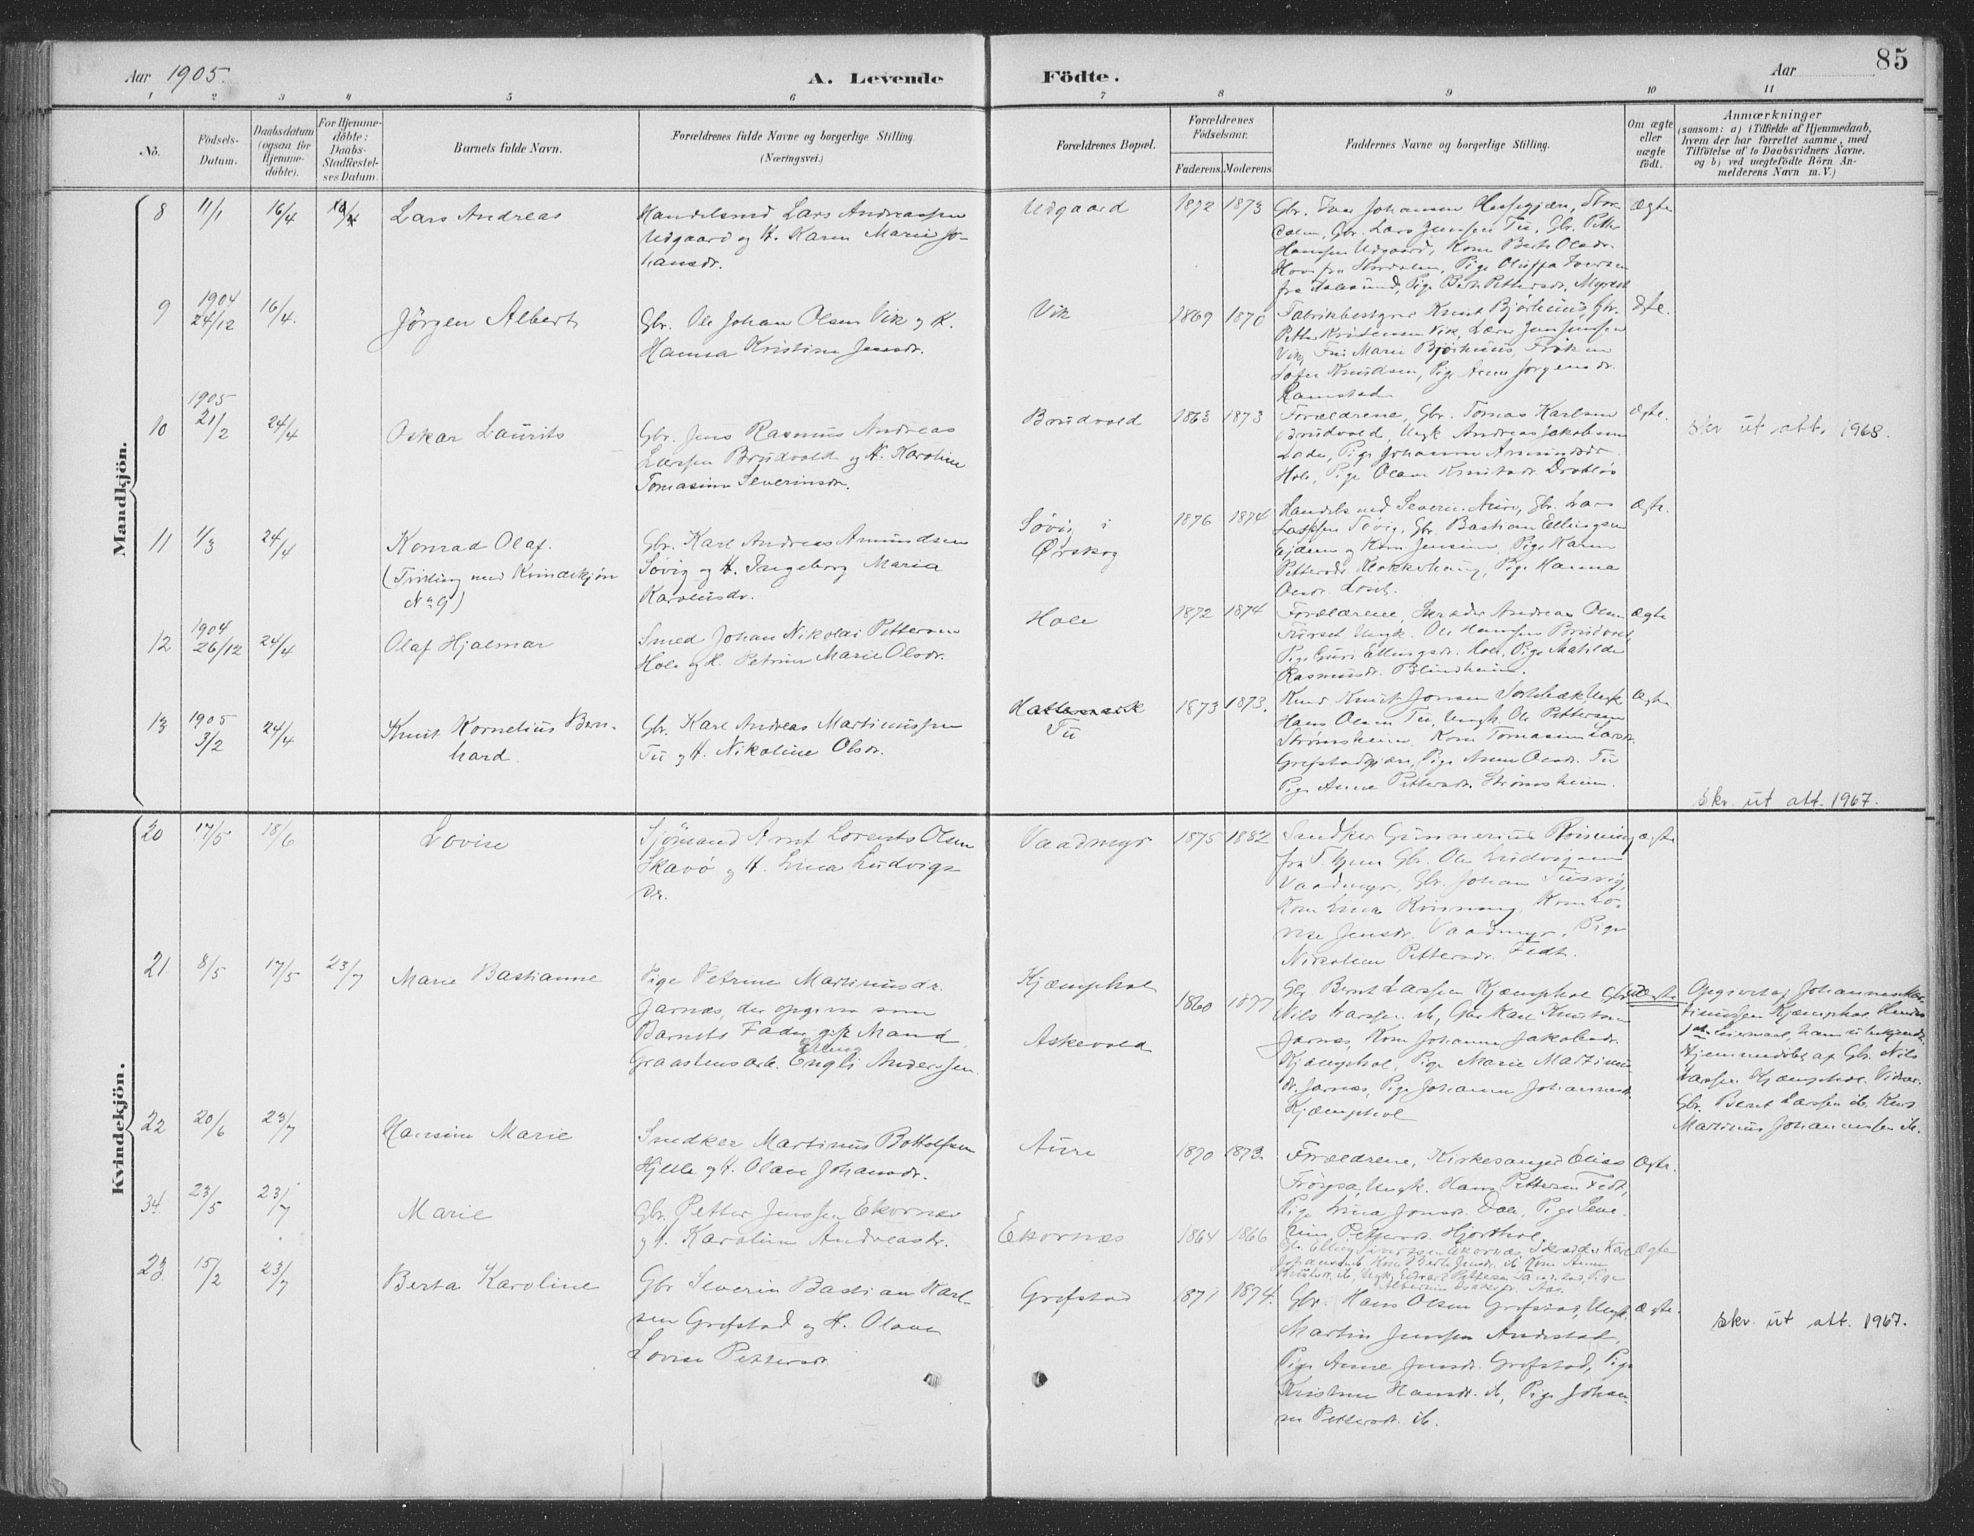 Aar 1905.
A. Levende Födte.
Aar
85
1 2 3 4 5 6 7 8 9 10 11
No.
Födsels-Datum.
Daabsdatum (ogsaa for Hjemme-döbte).
For Hjemme-döbte: Daabs-Stadfæstel-ses Datum.
Barnets fulde Navn.
Forældrenes fulde Navne og borgerlige Stilling.
(Næringsvei.)
Forældrenes Bopæl.
Forældrenes Födselsaar.
Faderens. Moderens.
Faddernes Navne og borgerlige Stilling.
Om ægte eller uægte födt.
Anmærkninger
(saasom: a) i Tilfælde af Hjemmedaab, hvem der har forrettet samme, med Tilföielse af to Daabsvidners Navne. og b) ved uægtefödte Börn An-melderens Navn m. V.)
Mandkjön.
8 11/1 16/4 Lars Andreas
Handelsmd Lars Andreassen
Udgaard og H. Karen Marie Jo-
hansdr.
Udgaard 1872 1873
Gbr. Iver Johansen
Gbr. Lars Jensen Tu, Gbr. Petter
Hansen Udgaard, Kone Berte Olsdr.
Hove fra Stordalen, Pige Oluffa Iversen
fra Aalesund, Pige Berte Pettersdr. Myrset
Ægte
9 1904 24/12 16/4. Jörgen Albert
Gbr. Ole Johan Olsen Vik og H.
Hanna Kristine Jensdr.
Vik 1869 1870
Fabrikbestyrer Knut Bjørhuus, Gbr.
Petter Kristensen Vik, Lærer Jens Jensen
Vik, Fru Marie Bjørhuus, Frøken
Knudsen, Pige Anne Jørgensdr.
Ramstad
Ægte.
10 1905 21/2 24/4 Oskar Laurits
Gbr. Jens Rasmus Andreas
Larssen Brudvold og H. Karoline
Tomasine Severinsdr.
Brudvold 1863 1873
Forældrene, Gbr. Tomas Karlsen
Brudvold, Ungk. Andreas Jakobsen
Lade, Pige Johanne Amundsdr.
Hole, Pige Olave Knutsdr. Drabløs
Ægte.
skr. ut att. 1968.
11 1/3 24/4 Konrad Olaf.
(Tvilling med Kvindekjön
No 9)
Gbr. Karl Andreas Amundsen
Søvig og H. Ingeborg Maria
Karolusdr.
Søvig i
Ørskog
1876 1874
Handelsmd Severin Aure, Gbr. Lars
Larssen Søvig, Gbr. Bastian Ellingsen
og Kone Jensine, Pige Karen
Pettersdr. Klokkerhaug, Pige Hanna
Olsdr.
Ægte.
12 1904 26/12 24/4 Olaf Hjalmar
Smed Johan Nikolai Pettersen
Hole og H. Petrine Marie Olsdr.
Hole 1872 1874
Forældrene, Skræder Andreas Olsen
Fürset, Ungk. Ole Hansen Brudvold
Pige Guri Ellingsdr. Hole, Pige Matilde
Rasmusdr. Blindheim.
Ægte
13 1905 3/2 24/4 Knut Kornelius Bern-
hard.
Gbr. Karl Andreas Martinussen
Tu og H. Nikoline Olsdr.
Tu
1873 1873.
Knut Jonsen Ungk.
Hans Olsen Tu, Ungk. Ole Pettersen
Strømsheim. Kone Tomasine Larsdr.
Grefstadgjære, Pige Anne Olsdr. Tu
Pige Anne Pettersdr. Strømsheim.
Ægte
skr. ut att. 1967.
Kvindekjön.
20 17/5 18/6 Lovise
Sjömand Arnt Lorents Olsen
Skavö og H. Lina Ludvigs
dr.
Vaadmyr 1875 1882
Snedker Gunnerius Rønning
Gbr. Ole Ludvigsen
Vaadmyr, Gbr. Johan Tusvig,
Kone Lina Rønning, Kone Lo-
vise Jensdr. Vaadmyr, Pige
Nikoline Pettersdr. Fedt.
Ægte
21. 8/5 17/5 23/7 Marie Bastianne
Pige Petrine Martinusdr.
Jarnæs, der opgiver som
Barnets Fader gift Mand,
Graastensarb. Elling Engli Anderssen.
Kjæmphol
Askevold
1860 1877
Gbr. Bernt Larssen Kjæmphol
Nils Larssen ib, Gbr. Karl Knutsen
Jarnæs, Kone Johanne Jakobsdr.
Kjæmphol, Pige Marie Martinus
dr. Jarnæs, Pige Johanne Johannesdr.
Kjæmphol
Uægte
Opgivet af Johannes Mar-
tinussen Kjæmphol
Hjemmedøbt af Gbr. Nils
Larssen Kjæmphol. Vidner
Gbr. Bernt Larssen ib.
Martinus Johannessen ib.
22 20/6 23/7 Hansine Marie
Snedker Martinus Bottolfsen
Hjelle og H. Olave Johansdr.
Aure 1870 1872.
Forældrene, Kirkesanger Elias
Ungk. Hans Pettersen Fedt,
Pige Lina Jonsdr. Dale, Pige
Pettersdr. Hjorthol.
Ægte.
34. 23/5 23/7 Marie
Gbr. Petter Jenssen Ekornæs
og H. Karoline Andreasdr.
Ekornæs 1864 1866
Gbr. Elling Sivertsen Ekornæs, Skræder Karl
Ægte
23 15/2 23/7 Berta Karoline
Gbr Severin Bastian Karl-
sen Grefstad og H. Olave
Lovise Pettersdr.
Grefstad 1871 1874.
Gbr. Hans Olsen Grefstad, Ungk.
Martin Jenssen Andestad,
Pige Anne Jensdr. Grefstad, Pige
Kristine Hansdr. ib, Pige Johan-
ne Pettersdr. ib.
Ægte.
skr. ut att. 1967.